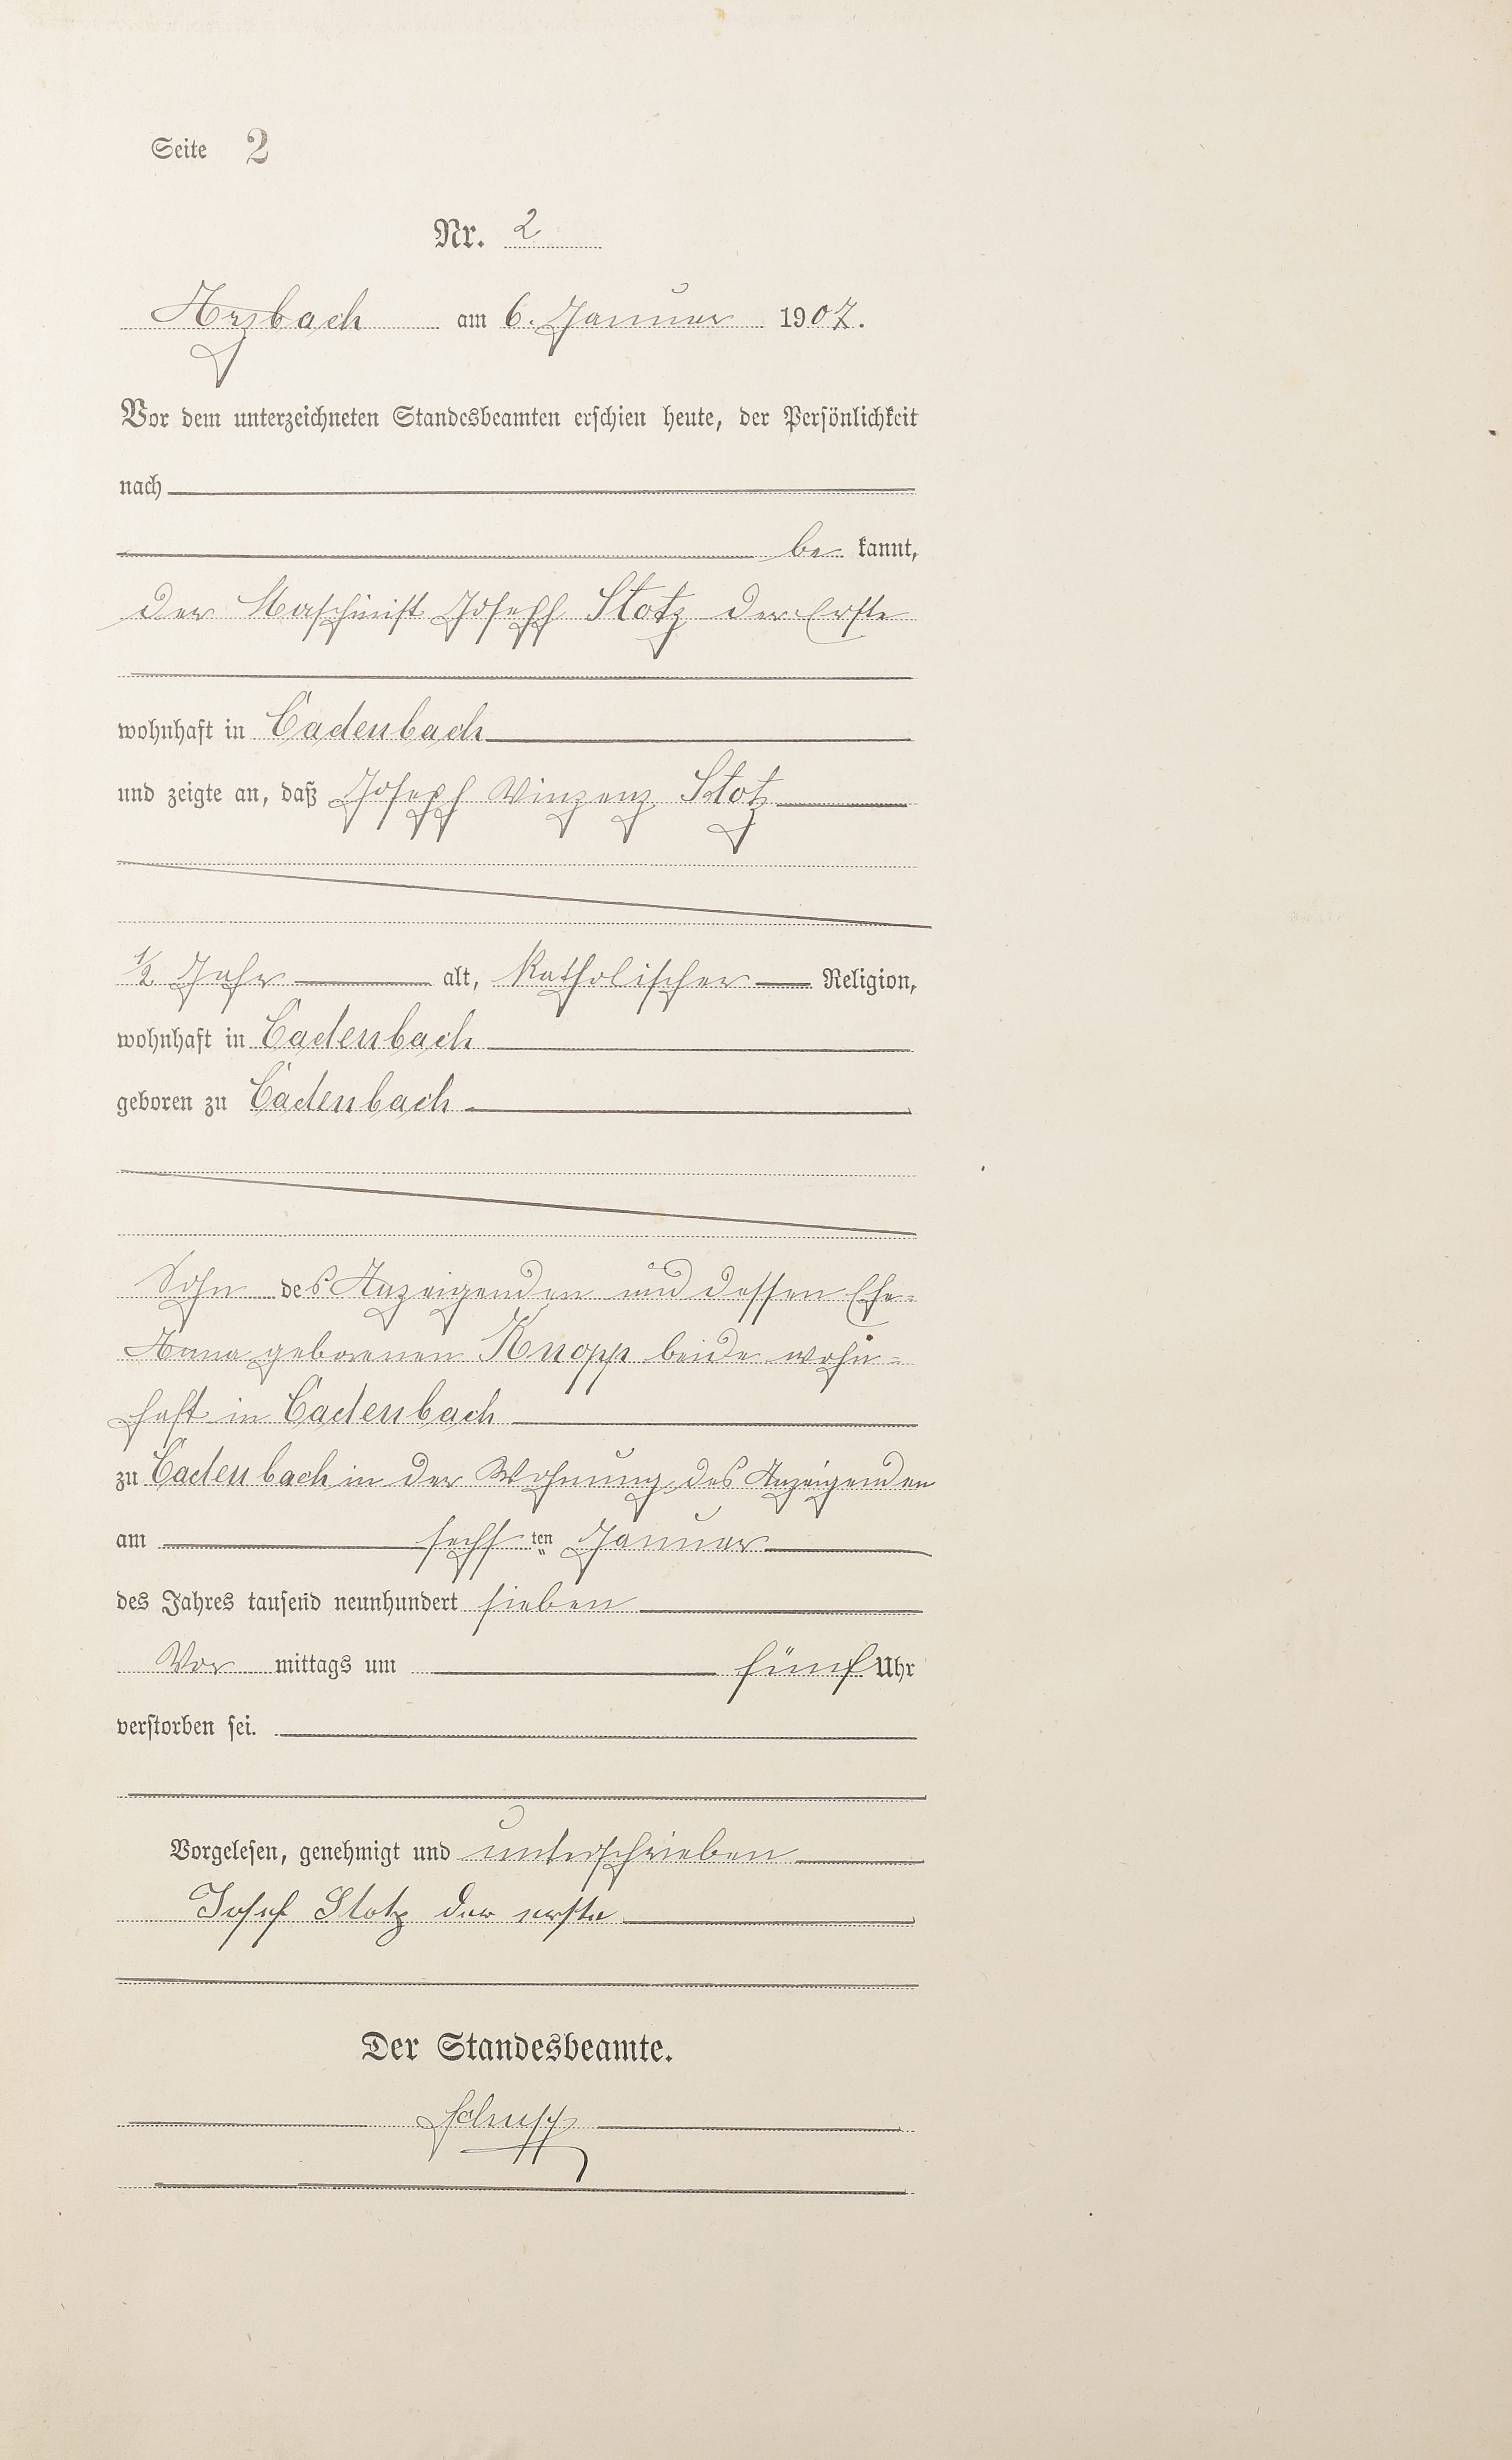 Seite 2
Nr. 2
Arzbach am 6. Januar 1907.
Vor dem unterzeichneten Standesbeamten erschien heute, der Persönlichkeit
nach
be kannt,
der Maschinist Joseph Stotz der Erste
wohnhaft in Cadenbach
und zeigte an, daß Joseph Vinzenz Stotz
1/2 Jahr alt, katholischer Religion,
wohnhaft in Cadenbach
geboren zu Cadenbach
Sohn des Anzeigenden und dessen Ehe-
Anna geborenen Knopp beide wohn-
haft in Cadenbach
zu Cadenbach in der Wohnung des Anzeigenden
am sechsten Januar
des Jahres tausend neunhundert sieben
Vor mittags um fünf Uhr
verstorben sei.
Vorgelesen, genehmigt und unterschrieben
Josef Stotz der erste
Der Standesbeamte.